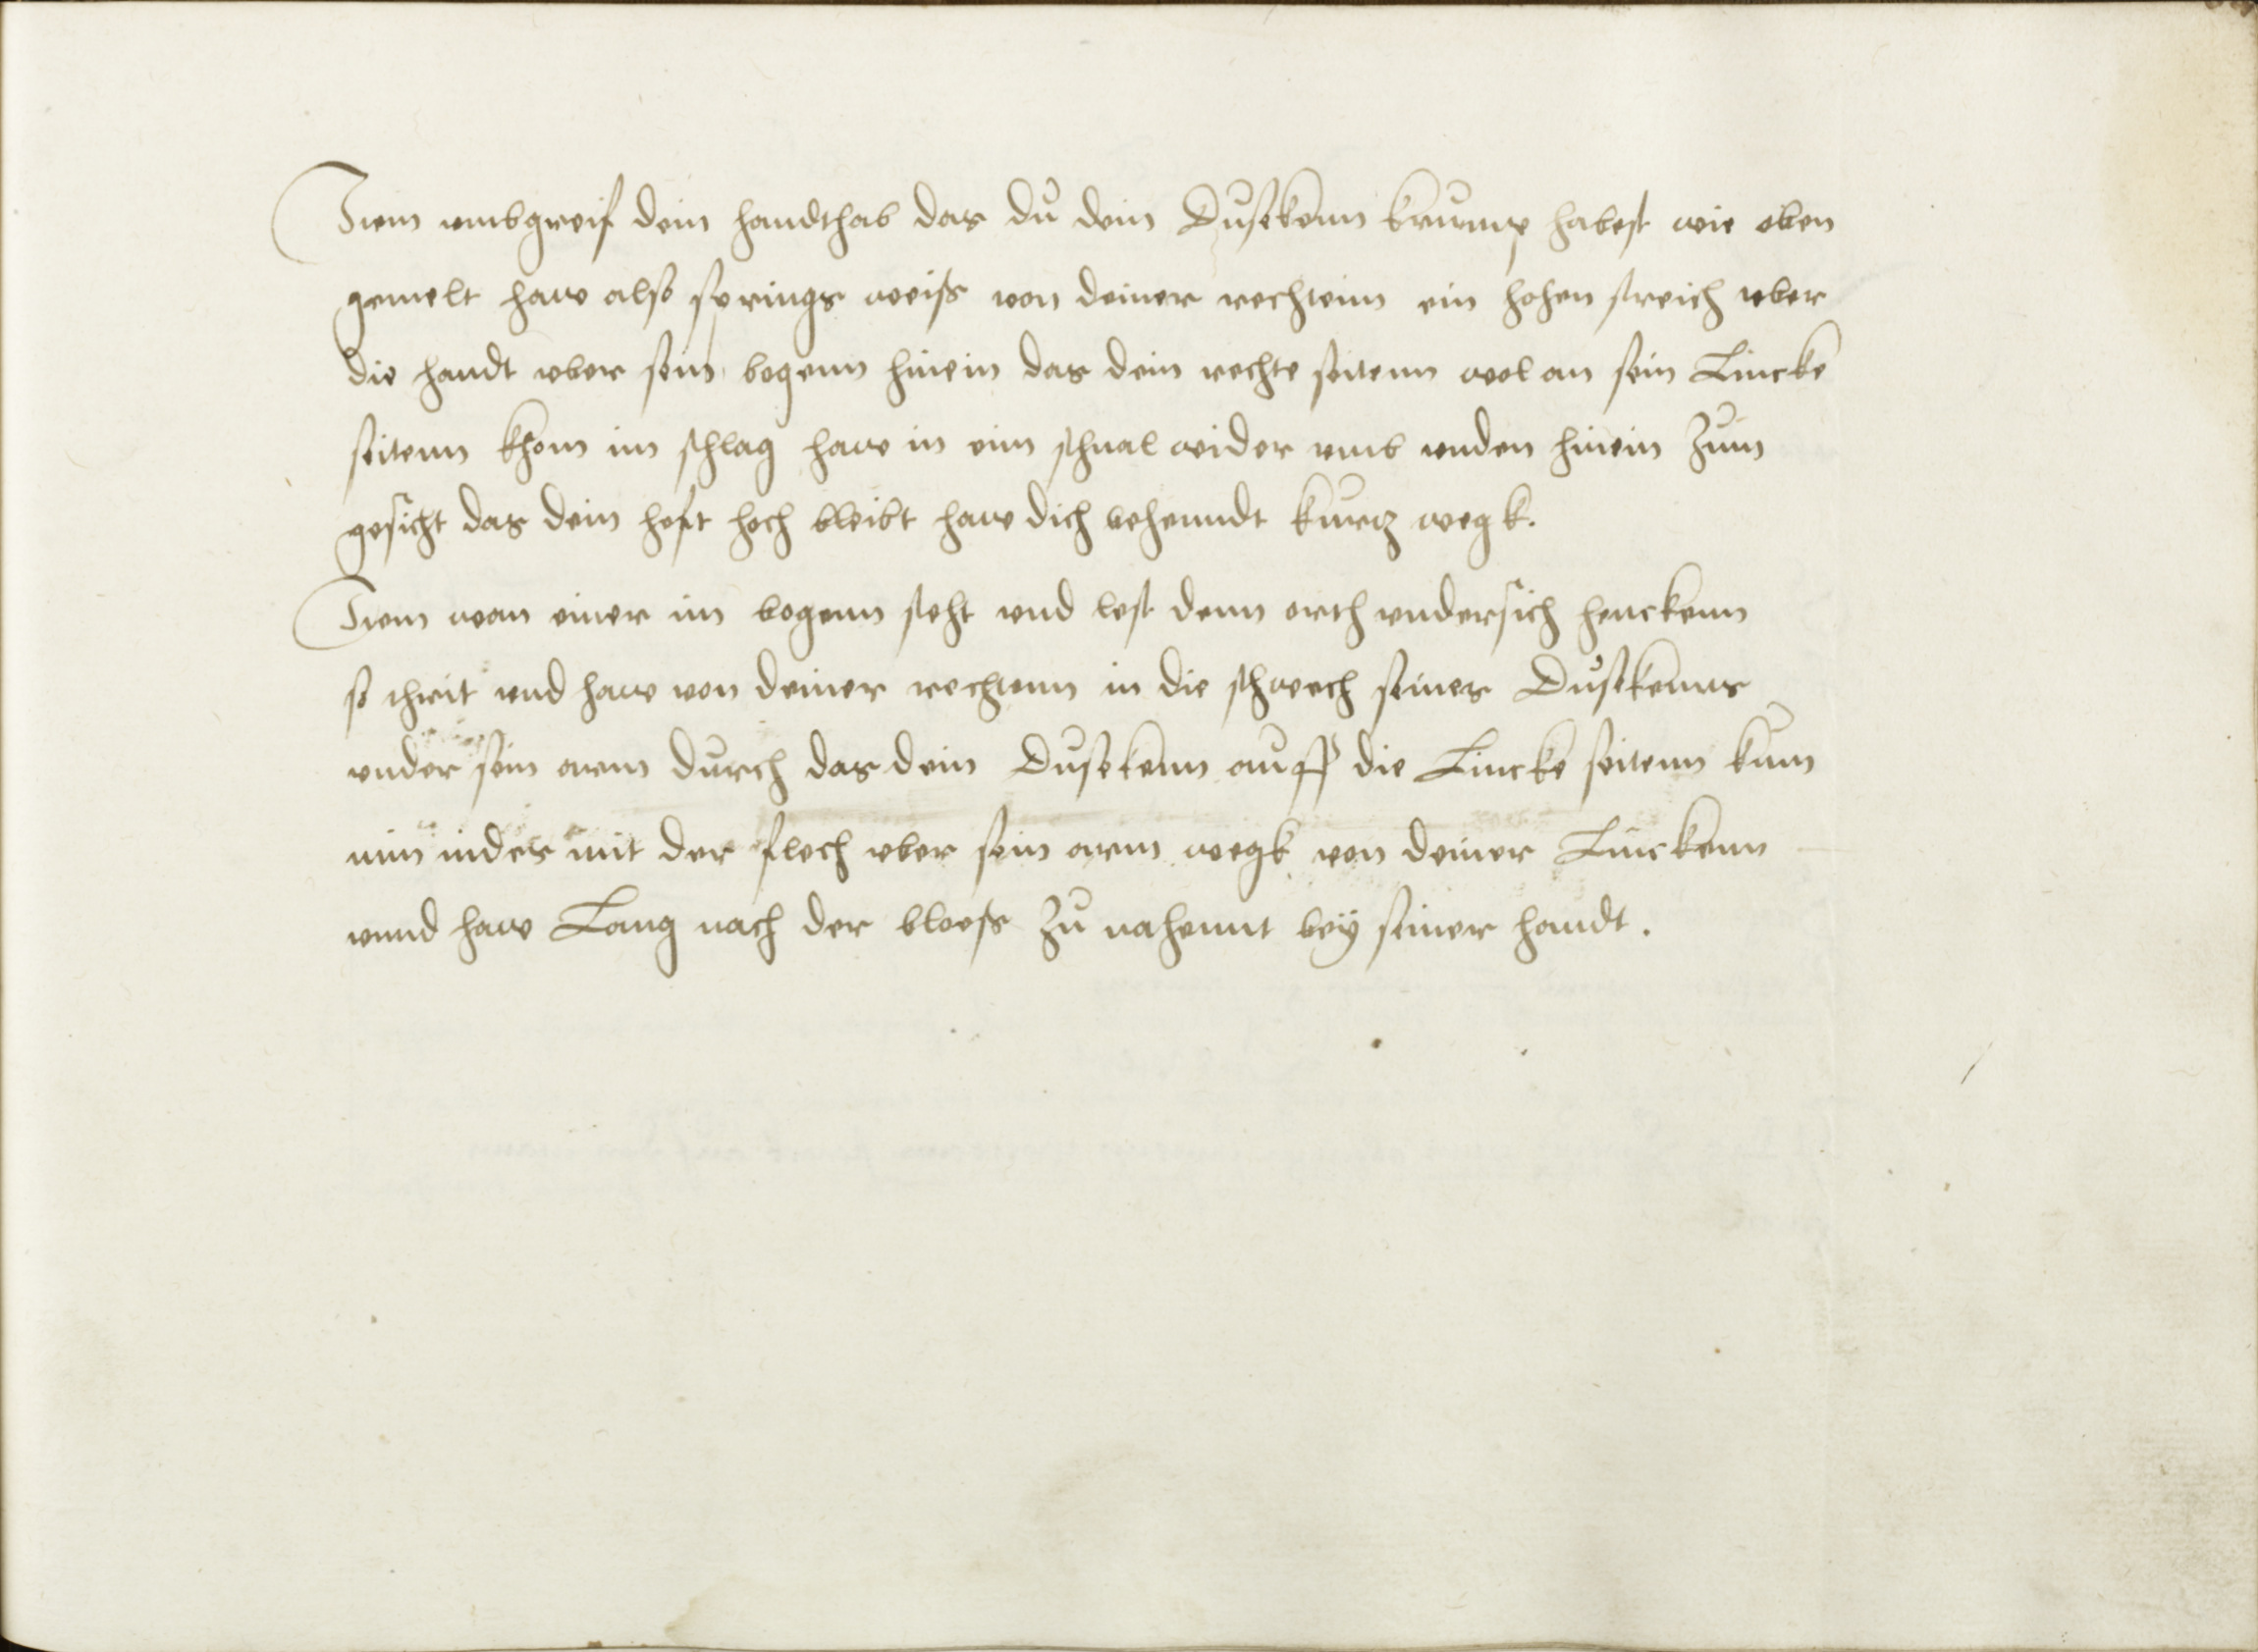 Item vmbgreif dein handthab das du dein Dusekenn krump habest wie oben
gemelt haw also springs weiſs von deiner rechtenn ein hohen streich vber
die handt vber sein bogenn hinein das dein rechte seitenn wol an sein Lincke
seitenn khom im schlag haw in eim schnal wider vmb vnden hinein zum
gesicht das dein heft hoch bleibt haw dich behenndt kurtz wegk.
Item wan einer im bogenn steht vnd lest denn orth vndersich henckenn
so thrit vnd haw von deiner rechtenn in die schwech seines Dusekenns
vnder sein arm durch das dein Dusekenn auff die Lincke seitenn kum
nim indes mit der flech vber sein arm wegk von deiner Linckenn
vnnd haw Lang nach der bloeſs zu nahennt bey seiner handt.